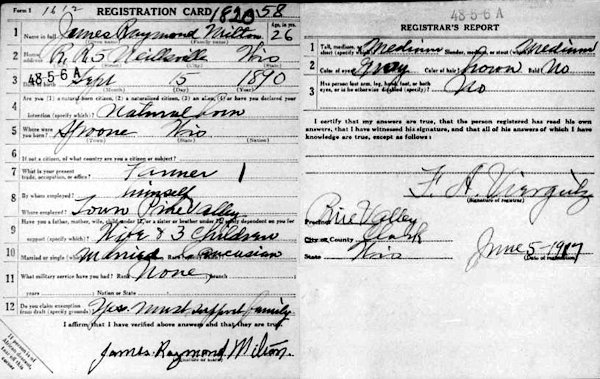 Form 1 1612 REGISTRATION CARD 182058
1 Name in full James Raymond Milton Age, in yrs. 26
(Given name) (Family name)
2 Home address R.R. 5 Neillsville Wis
48-5-6 A
3 Date of birth Sept 15 1890
(Month) (Day) (Year)
4 Are you (1) a natural-born citizen, (2) a naturalized citizen, (3) an alien, (4) or have you declared your
intention (specify which)? Natural born
5 Where were you born? Wis
(Town) (State) (Nation)
6 If not a citizen, of what country are you a citizen or subject?
7 What is your present trade, occupation, or office? Farmer 1
8 By whom employed? himself
Where employed? Town Pine Valley
9 Have you a father, mother, wife, child under 12, or a sister or brother under 12, solely dependent on you for
support (specify which)? Wife & 3 Children
10 Married or single (which)? Married Race (specify which)? Caucasian
11 What military service have you had? Rank None ; branch
years ; Nation or State
12 Do you claim exemption from draft (specify grounds)? Yes Must support family
I affirm that I have verified above answers and that they are true.
James Raymond Milton
(Signature or mark)
48-5-6 A
REGISTRAR'S REPORT
1 Tall, medium, or short (specify which)? Medium Slender, medium, or stout (which)? Medium
2 Color of eyes? Gray Color of hair? brown Bald? No
3 Has person lost arm, leg, hand, foot, or both
eyes, or is he otherwise disabled (specify)? No
I certify that my answers are true, that the person registered has read his own
answers, that I have witnessed his signature, and that all of his answers of which I have
knowledge are true, except as follows:
F. A. Viergutz
(Signature of registrar)
Precinct Pine Valley
City or County Clark
State Wis
June 5 - 1917
(Date of registration)